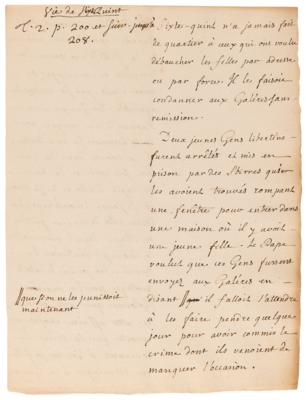 Vie de Sixte Quint
T. 2. p. 200 et suiv. jusqu'à
208.
Sixte-quint n'a jamais fait
de quartier à ceux qui ont voulu
débaucher les filles par adresse
ou par force. Il les faisoit
condanner aux Galéres sans
remission.
Deux jeunes Gens libertins
furent arrêtés et mis en
prison par des Sbirres qui
les avoient trouvés rompant
une fenêtre pour entrer dans
une maison où il y avoit
une jeune fille. Le Pape
voulut que ces Gens fussent
envoyez aux Galéres en
disant || il falloit l'attendre
à les faire pendre quelque
jour pour avoir commis le
crime dont ils venoient de
manquer l'occasion.
|| que si on ne les punissoit
maintenant